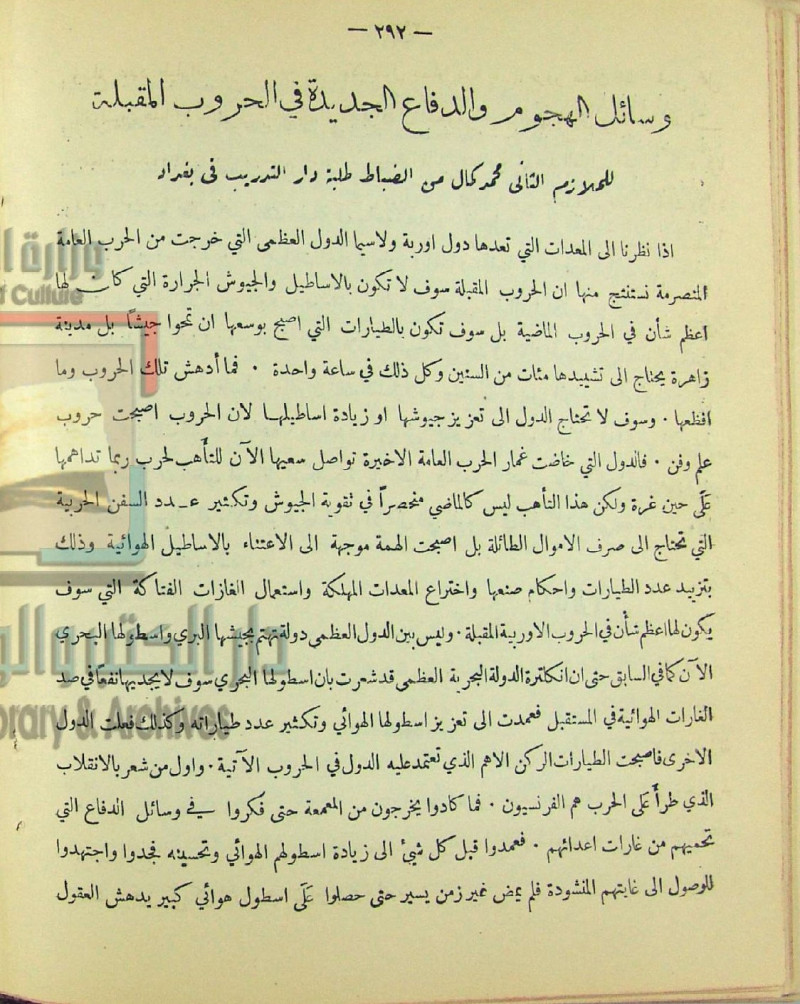 — ٢٩٢ —
وسائل الهجوم والدفاع الجديدة في الحروب المقبلة
للملازم الثاني محمد كمال من الضباط طلبة دار التدريب في بغداد
اذا نظرنا الى المعدات التي تعدها دول اوربة ولاسيما الدول العظمى التي خرجت من الحرب العامة
المتصرمة نستنتج منها ان الحروب المقبلة سوف لا تكون بالاساطيل والجيوش الجرارة التي كان لها
اعظم شأن في الحروب الماضية بل سوف تكون بالطيارات التي اصبح بوسعها ان تمحوا جيشاً بل مدينة
زاهرة يحتاج الى تشييدها مئات من السنين وكل ذلك في ساعة واحدة . فما أدهش تلك الحروب وما
افظعها . وسوف لا تحتاج الدول الى تعزيز جيوشها او زيادة اساطيلها لان الحروب اصبحت حروب
علم وفن . فالدول التي خاضت غمار الحرب العامة الاخيرة تواصل سعيها الآن للتأهب لحرب ربما تداهمها
على حين غرة ولكن هذا التأهب ليس كالماضي منحصراً في تقوية الجيوش وتكثير عدد السفن الحربية
التي تحتاج الى صرف الاموال الطائلة بل اصبحت الهمة موجهة الى الاعتناء بالاساطيل الهوائية وذلك
بتزييد عدد الطيارات واحكام صنعها واختراع المعدات المهلكة واستعمال الغازات الفتاكة التي سوف
يكون لها اعظم شأن في الحروب الاوربية المقبلة . وليس بين الدول العظمى دولة تهتم بجيشها البري واسطولها البحري
الآن كما في السابق حتى ان انكلترة الدولة البحرية العظمى قد شعرت بان اسطولها البحري سوف لا يجديها نفعاً في صد
الغارات الهوائية في المستقبل فعمدت الى تعزيز اسطولها الهوائي وتكثير عدد طياراته وكذلك فعلت الدول
الاخرى فاصبحت الطيارات الركن الاهم الذي تعتمد عليه الدول في الحروب الآتية . واول من شعر بالانقلاب
الذي طرأ على الحرب هم الفرنسيون . فما كادوا يخرجون من المعمعة حتى فكروا في وسائل الدفاع التي
تحميهم من غارات اعدائهم . فعمدوا قبل كل شيئ الى زيادة اسطولهم الهوائي وتحسينه فجدوا واجتهدوا
للوصول الى غايتهم المنشودة فلم يمض غير زمن يسير حتى حصلوا على اسطول هوائي كبير يدهش العقول